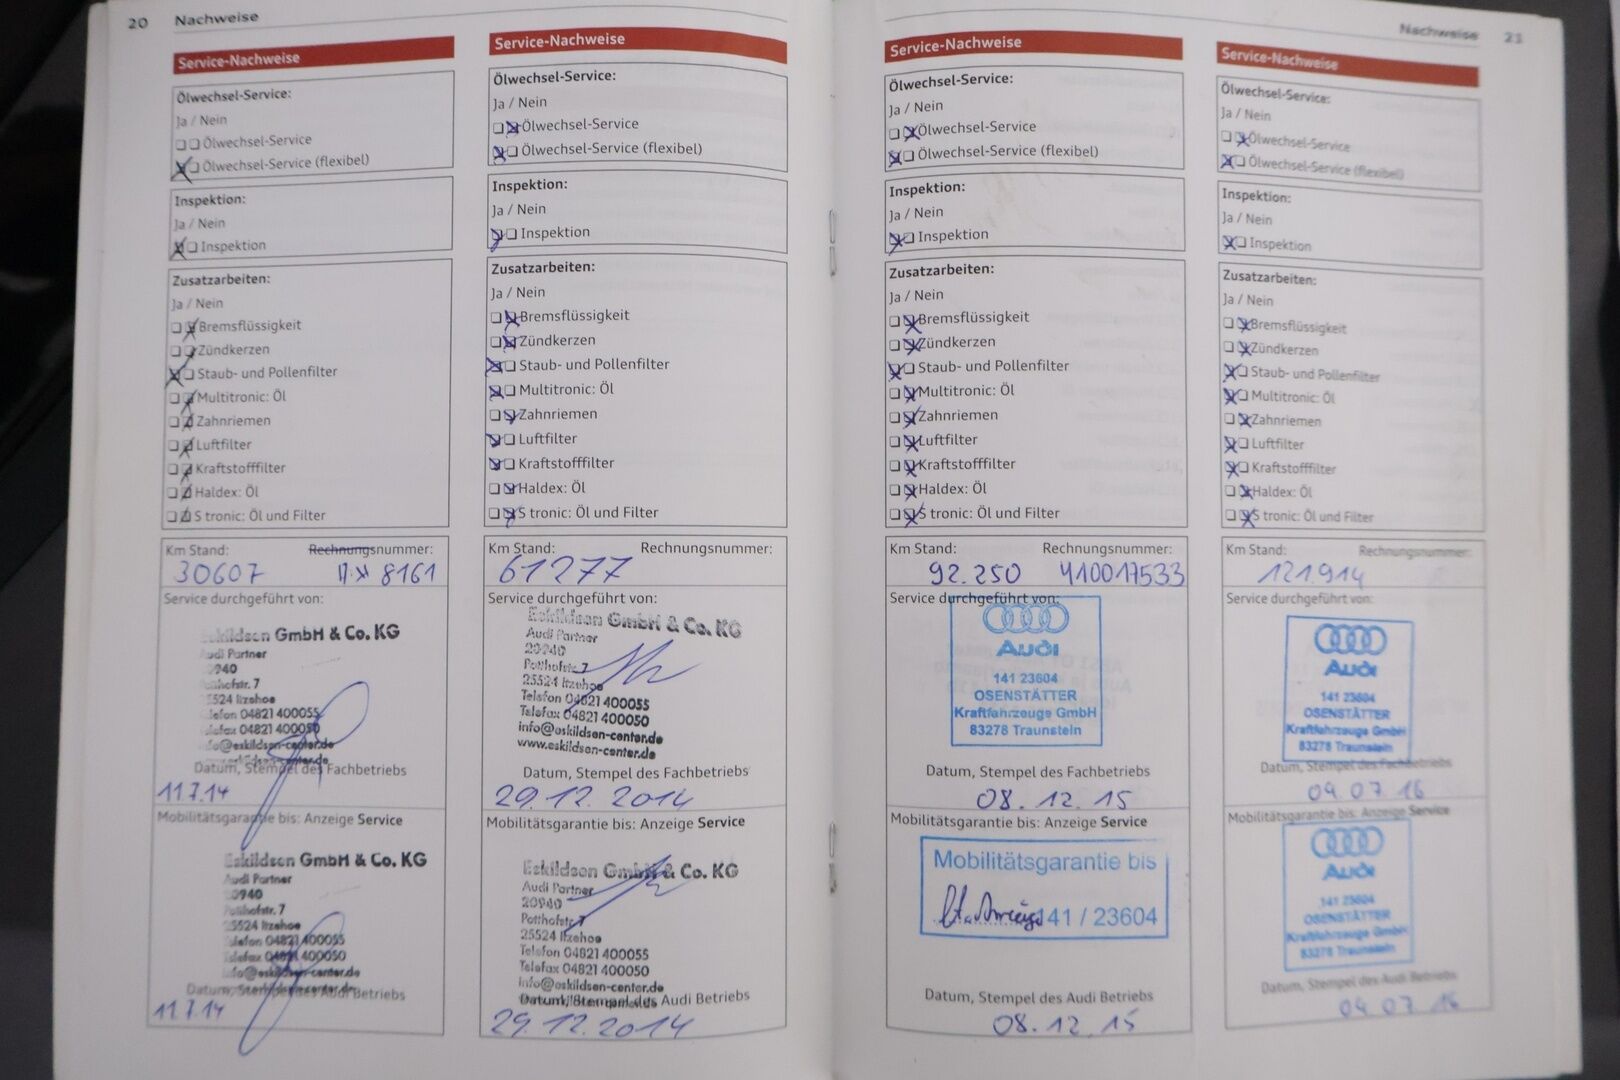 20 Nachweise
Service-Nachweise
Ölwechsel-Service:
Ja / Nein
Ölwechsel-Service
Ölwechsel-Service (flexibel)
Inspektion:
Ja / Nein
Inspektion
Zusatzarbeiten:
Ja / Nein
Bremsflüssigkeit
Zündkerzen
Staub- und Pollenfilter
Multitronic: Öl
Zahnriemen
Luftfilter
Kraftstofffilter
Haldex: Öl
S tronic: Öl und Filter
Km Stand: Rechnungsnummer:
30607 8161
Service durchgeführt von:
Eskildsen GmbH & Co. KG
Audi Partner
20940
Potthofstr. 7
25524 Itzehoe
Telefon 04821 400055
Telefax 04821 400050
info@eskildsen-center.de
Datum, Stempel des Fachbetriebs
11.7.14
Mobilitätsgarantie bis: Anzeige Service
Eskildsen GmbH & Co. KG
Audi Partner
20940
Potthofstr. 7
25524 Itzehoe
Telefon 04821 400055
Telefax 04821 400050
info@eskildsen-center.de
Datum, Stempel des Audi Betriebs
11.7.14
Service-Nachweise
Ölwechsel-Service:
Ja / Nein
Ölwechsel-Service
Ölwechsel-Service (flexibel)
Inspektion:
Ja / Nein
Inspektion
Zusatzarbeiten:
Ja / Nein
Bremsflüssigkeit
Zündkerzen
Staub- und Pollenfilter
Multitronic: Öl
Zahnriemen
Luftfilter
Kraftstofffilter
Haldex: Öl
S tronic: Öl und Filter
Km Stand: Rechnungsnummer:
61277
Service durchgeführt von:
Eskildsen GmbH & Co. KG
Audi Partner
20940
Potthofstr. 7
25524 Itzehoe
Telefon 04821 400055
Telefax 04821 400050
info@eskildsen-center.de
www.eskildsen-center.de
Datum, Stempel des Fachbetriebs
29.12.2014
Mobilitätsgarantie bis: Anzeige Service
Eskildsen GmbH & Co. KG
Audi Partner
20940
Potthofstr. 7
25524 Itzehoe
Telefon 04821 400055
Telefax 04821 400050
info@eskildsen-center.de
Datum, Stempel des Audi Betriebs
29.12.2014
Nachweise 21
Service-Nachweise
Ölwechsel-Service:
Ja / Nein
Ölwechsel-Service
Ölwechsel-Service (flexibel)
Inspektion:
Ja / Nein
Inspektion
Zusatzarbeiten:
Ja / Nein
Bremsflüssigkeit
Zündkerzen
Staub- und Pollenfilter
Multitronic: Öl
Zahnriemen
Luftfilter
Kraftstofffilter
Haldex: Öl
S tronic: Öl und Filter
Km Stand: Rechnungsnummer:
92.250 410017533
Service durchgeführt von:
Audi
141 23604
OSENSTÄTTER
Kraftfahrzeuge GmbH
83278 Traunstein
Datum, Stempel des Fachbetriebs
08.12.15
Mobilitätsgarantie bis: Anzeige Service
Mobilitätsgarantie bis
lt. Anzeige 141 / 23604
Datum, Stempel des Audi Betriebs
08.12.15
Service-Nachweise
Ölwechsel-Service:
Ja / Nein
Ölwechsel-Service
Ölwechsel-Service (flexibel)
Inspektion:
Ja / Nein
Inspektion
Zusatzarbeiten:
Ja / Nein
Bremsflüssigkeit
Zündkerzen
Staub- und Pollenfilter
Multitronic: Öl
Zahnriemen
Luftfilter
Kraftstofffilter
Haldex: Öl
S tronic: Öl und Filter
Km Stand: Rechnungsnummer:
121.914
Service durchgeführt von:
Audi
141 23604
OSENSTÄTTER
Kraftfahrzeuge GmbH
83278 Traunstein
Datum, Stempel des Fachbetriebs
04.07.16
Mobilitätsgarantie bis: Anzeige Service
Audi
141 23604
OSENSTÄTTER
Kraftfahrzeuge GmbH
83278 Traunstein
Datum, Stempel des Audi Betriebs
04.07.16